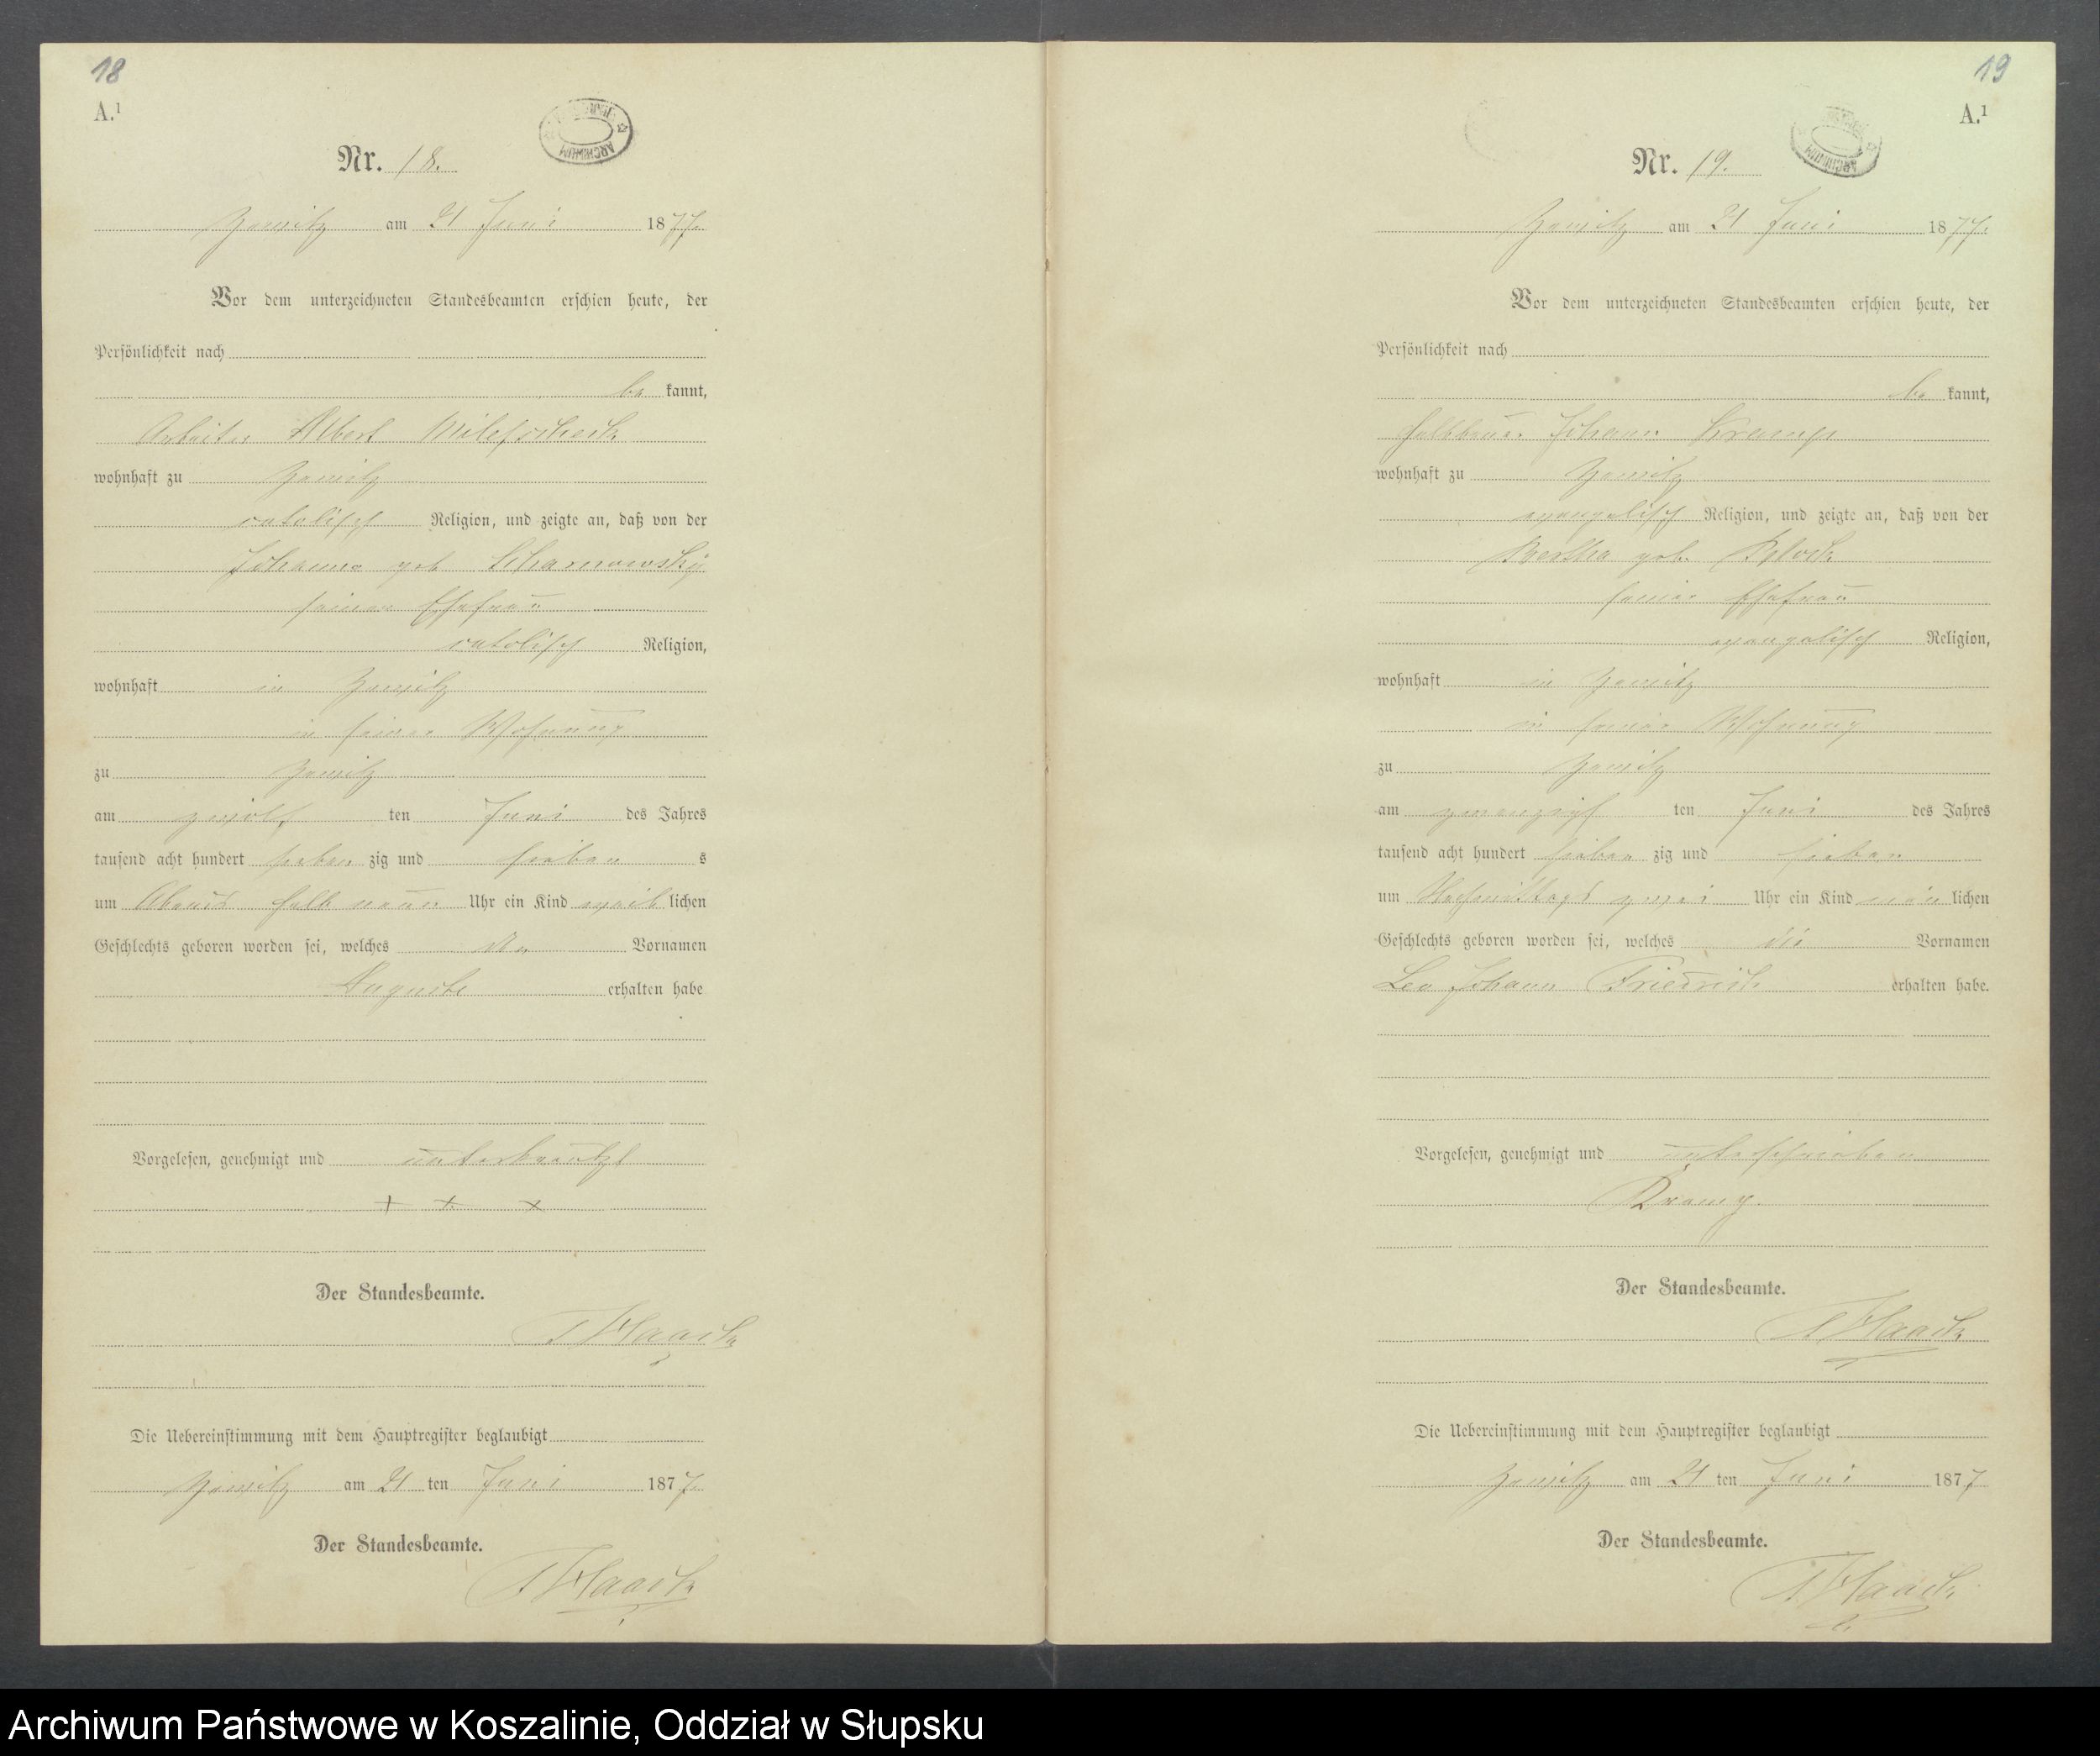 18
A.¹
Nr. 18.
Zemitz am 21 Juni 1877.
Vor dem unterzeichneten Standesbeamten erschien heute, der
Persönlichkeit nach
be kannt,
Arbeiter Albert
wohnhaft zu Zemitz
catolisch Religion, und zeigte an, daß von der
Johanna geb Scharnowsky
seiner Ehefrau
catolisch Religion,
wohnhaft in Zemitz
in seiner Wohnung
zu Zemitz
am zwölf ten Juni des Jahres
tausend acht hundert sieben zig und sieben s
um Abends halb neun Uhr ein Kind weib lichen
Geschlechts geboren worden sei, welches den Vornamen
Auguste erhalten habe
Vorgelesen, genehmigt und unterkreutzt
+ + x
Der Standesbeamte.
Haack
Die Uebereinstimmung mit dem Hauptregister beglaubigt
Zemitz am 21 ten Juni 1877.
Der Standesbeamte.
Haack
19
A.¹
Nr. 19.
Zemitz am 21 Juni 1877.
Vor dem unterzeichneten Standesbeamten erschien heute, der
Persönlichkeit nach
be kannt,
Halbbauer Johann Kramp
wohnhaft zu Zemitz
evangelisch Religion, und zeigte an, daß von der
Bertha geb.
seiner Ehefrau
evangelisch Religion,
wohnhaft in Zemitz
in seiner Wohnung
zu Zemitz
am zwanzigs ten Juni des Jahres
tausend acht hundert sieben zig und sieben
um Nachmittags zwei Uhr ein Kind män lichen
Geschlechts geboren worden sei, welches die Vornamen
Leo Johann Friedrich erhalten habe.
Vorgelesen, genehmigt und unterschrieben
Kramp.
Der Standesbeamte.
Haack
Die Uebereinstimmung mit dem Hauptregister beglaubigt
Zemitz am 21 ten Juni 1877
Der Standesbeamte.
Haack
Archiwum Państwowe w Koszalinie, Oddział w Słupsku